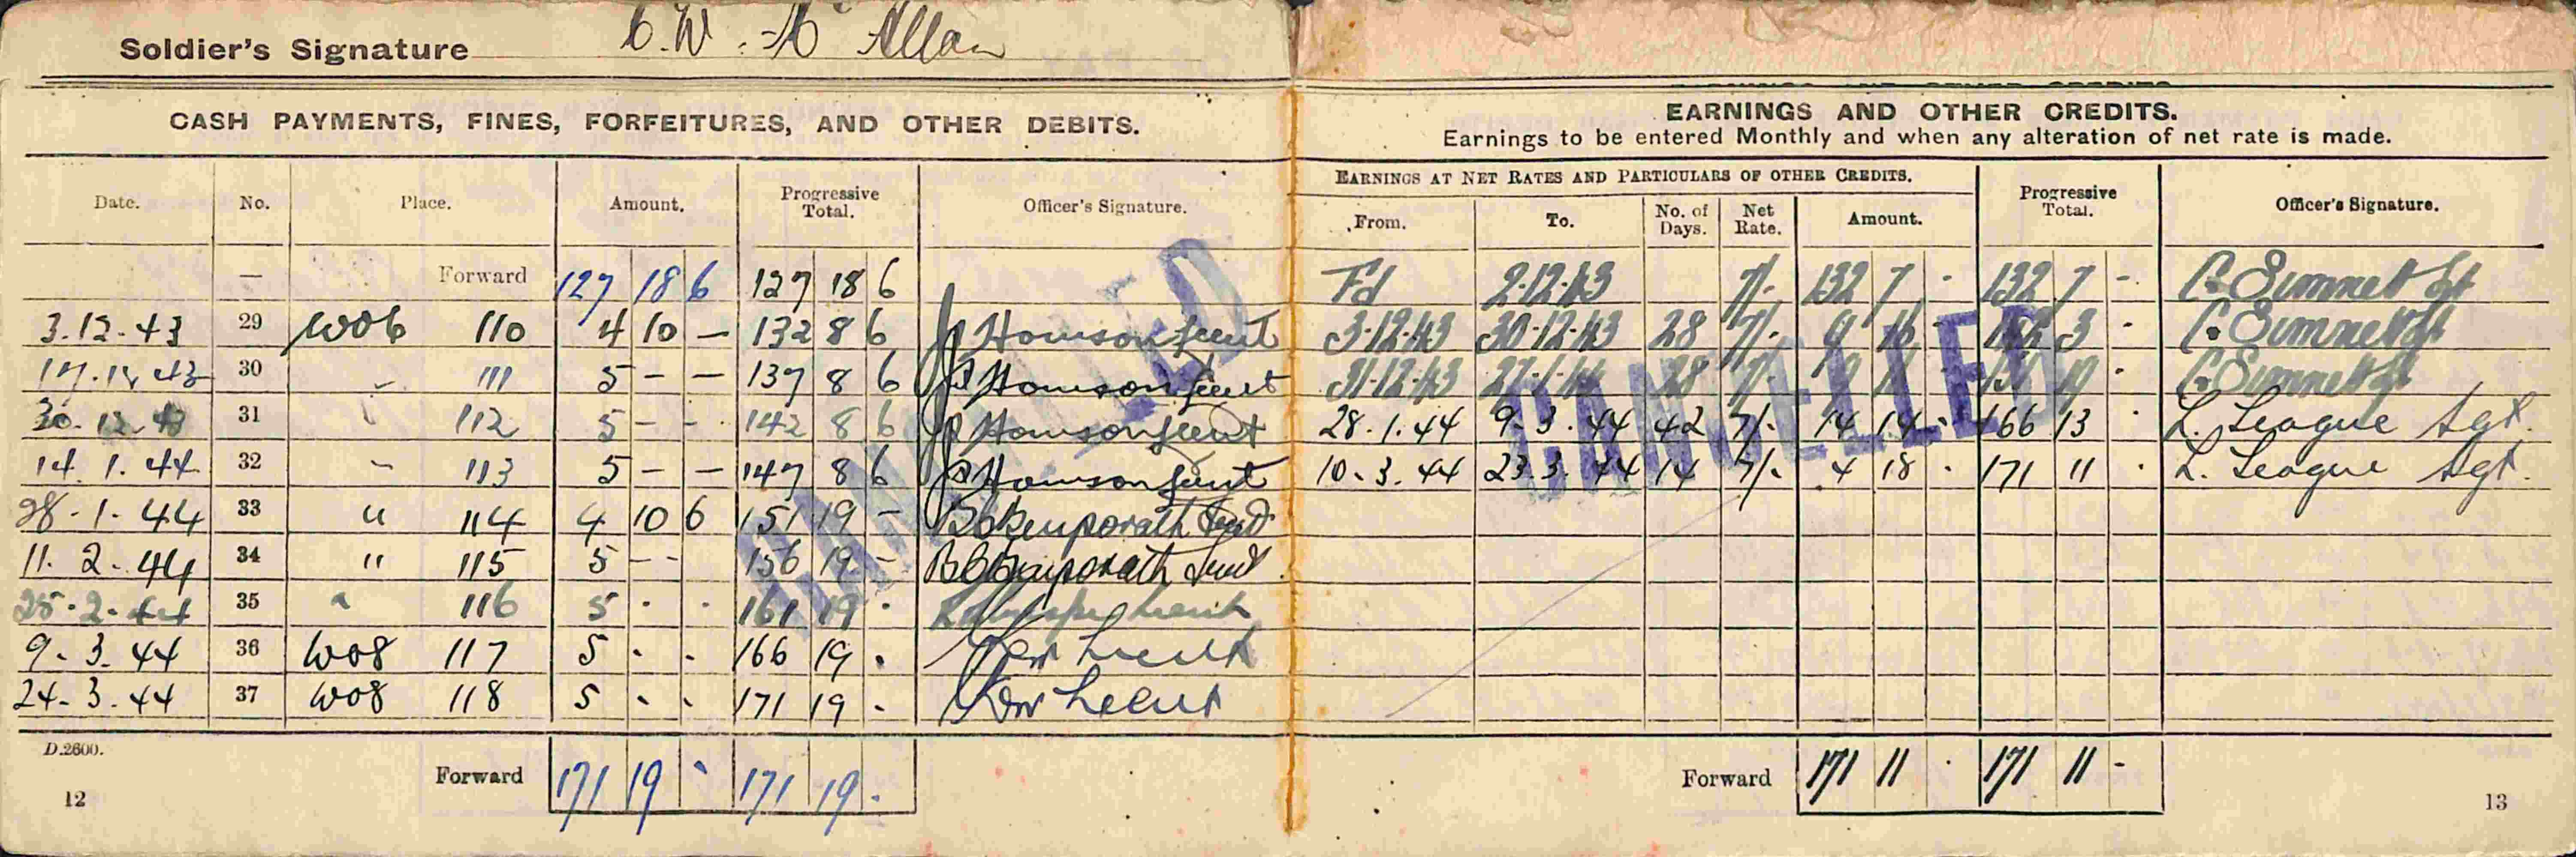 Soldier's Signature C.W. Mc Allan
CASH PAYMENTS, FINES, FORFEITURES, AND OTHER DEBITS.
Date. No. Place. Amount. Progressive Total. Officer's Signature.
— Forward 127 18 6 127 18 6
3.12.43 29 W06 110 4 10 — 132 8 6 Lieut
17.12.43 30 " 111 5 — — 137 8 6 Lieut
30.12.43 31 " 112 5 - - 142 8 6 Lieut
14.1.44 32 " 113 5 — — 147 8 6 Lieut
28.1.44 33 " 114 4 10 6 151 19 -
11.2.44 34 " 115 5 - - 156 19 -
25.2.44 35 " 116 5 . . 161 19 . Lieut
9.3.44 36 W08 117 5 . . 166 19 . Lieut
24.3.44 37 W08 118 5 . . 171 19 . Lieut
D.2600.
Forward 171 19 - 171 19 .
12
EARNINGS AND OTHER CREDITS.
Earnings to be entered Monthly and when any alteration of net rate is made.
EARNINGS AT NET RATES AND PARTICULARS OF OTHER CREDITS. Progressive Total. Officer's Signature.
From. To. No. of Days. Net Rate. Amount.
Fd 2.12.43 7/- 132 7 - 132 7 -
3.12.43 30.12.43 28 7/- 9 16 - 142 3 -
31.12.43 27.1.44 28 7/- 19 -
28.1.44 9.3.44 42 7/- 14 14 - 166 13 . L. League Sgt.
10.3.44 23.3.44 14 7/- 4 18 . 171 11 . L. League Sgt.
CANCELLED
CANCELLED
Forward 171 11 . 171 11 -
13